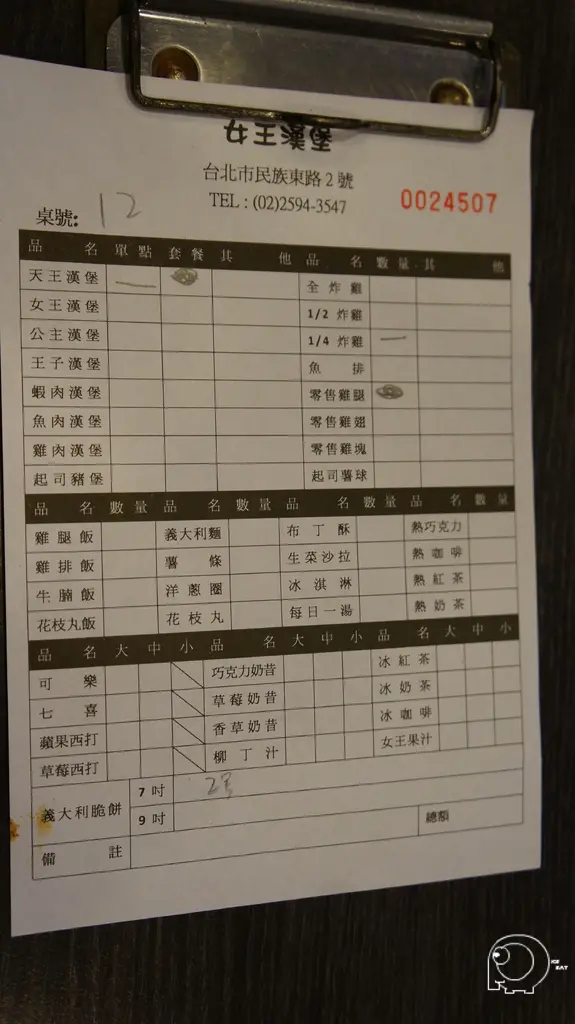 女王漢堡
台北市民族東路 2 號
TEL : (02)2594-3547
0024507
桌號: 12
品 名 單點 套餐 其 他 品 名 數量 其 他
天王漢堡 一 全炸雞
女王漢堡 1/2 炸雞
公主漢堡 1/4 炸雞 一
王子漢堡 魚排
蝦肉漢堡 零售雞腿
魚肉漢堡 零售雞翅
雞肉漢堡 零售雞塊
起司豬堡 起司薯球
品 名 數量 品 名 數量 品 名 數量 品 名 數量
雞腿飯 義大利麵 布丁酥 熱巧克力
雞排飯 薯條 生菜沙拉 熱咖啡
牛腩飯 洋蔥圈 冰淇淋 熱紅茶
花枝丸飯 花枝丸 每日一湯 熱奶茶
品 名 大 中 小 品 名 大 中 小 品 名 大 中 小
可樂 巧克力奶昔 冰紅茶
七喜 草莓奶昔 冰奶茶
蘋果西打 香草奶昔 冰咖啡
草莓西打 柳丁汁 女王果汁
義大利脆餅 7 吋 2号
9 吋
總額
備註
ICE
EAT